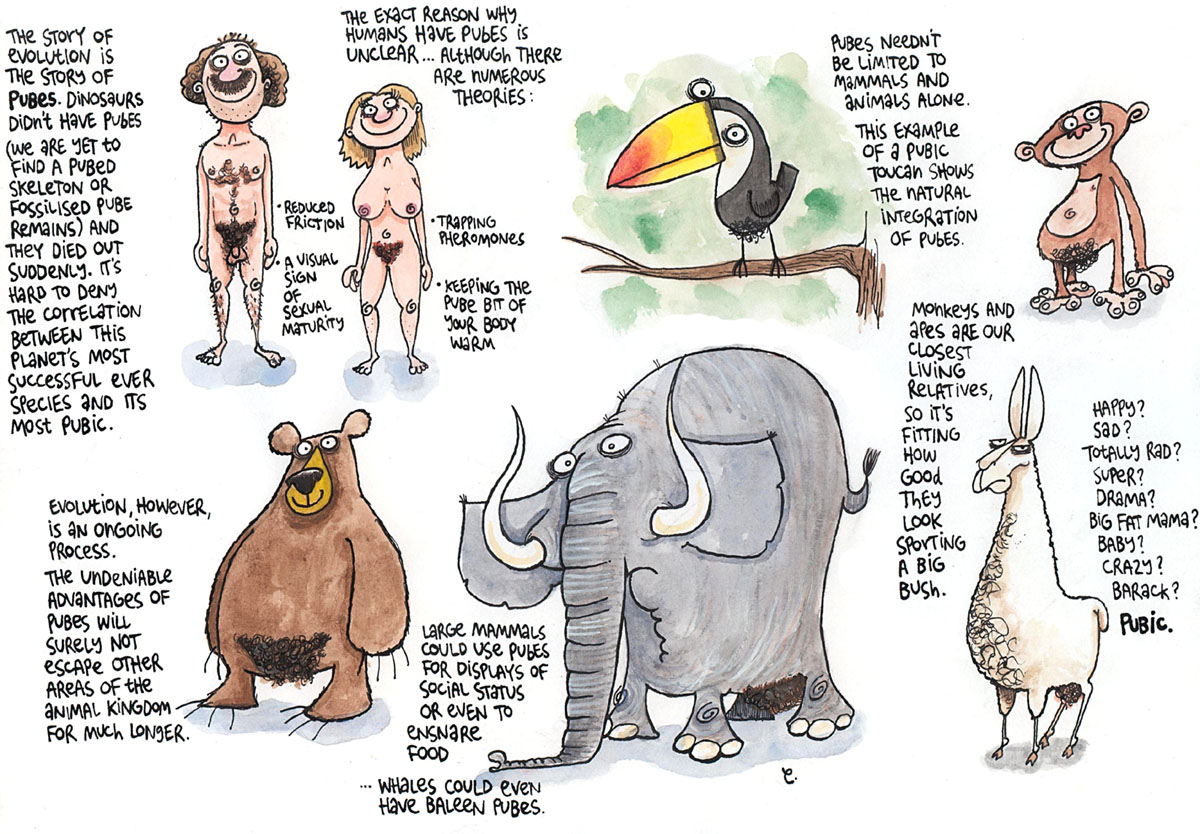 THE STORY OF
EVOLUTION IS
THE STORY OF
PUBES. DINOSAURS
DIDN'T HAVE PUBES
(WE ARE YET TO
FIND A PUBED
SKELETON OR
FOSSILISED PUBE
REMAINS) AND
THEY DIED OUT
SUDDENLY. IT'S
HARD TO DENY
THE CORRELATION
BETWEEN THIS
PLANET'S MOST
SUCCESSFUL EVER
SPECIES AND ITS
MOST PUBIC.
THE EXACT REASON WHY
HUMANS HAVE PUBES IS
UNCLEAR... ALTHOUGH THERE
ARE NUMEROUS
THEORIES:
• REDUCED
FRICTION
• A VISUAL
SIGN
OF
SEXUAL
MATURITY
• TRAPPING
PHEROMONES
• KEEPING THE
PUBE BIT OF
YOUR BODY
WARM
PUBES NEEDN'T
BE LIMITED TO
MAMMALS AND
ANIMALS ALONE.
THIS EXAMPLE
OF A PUBIC
TOUCAN SHOWS
THE NATURAL
INTEGRATION
OF PUBES.
MONKEYS AND
APES ARE OUR
CLOSEST
LIVING
RELATIVES,
SO IT'S
FITTING
HOW
GOOD
THEY
LOOK
SPORTING
A BIG
BUSH.
EVOLUTION, HOWEVER,
IS AN ONGOING
PROCESS.
THE UNDENIABLE
ADVANTAGES OF
PUBES WILL
SURELY NOT
ESCAPE OTHER
AREAS OF THE
ANIMAL KINGDOM
FOR MUCH LONGER.
LARGE MAMMALS
COULD USE PUBES
FOR DISPLAYS OF
SOCIAL STATUS
OR EVEN TO
ENSNARE
FOOD
... WHALES COULD EVEN
HAVE BALEEN PUBES.
HAPPY?
SAD?
TOTALLY RAD?
SUPER?
DRAMA?
BIG FAT MAMA?
BABY?
CRAZY?
BARACK?
PUBIC.